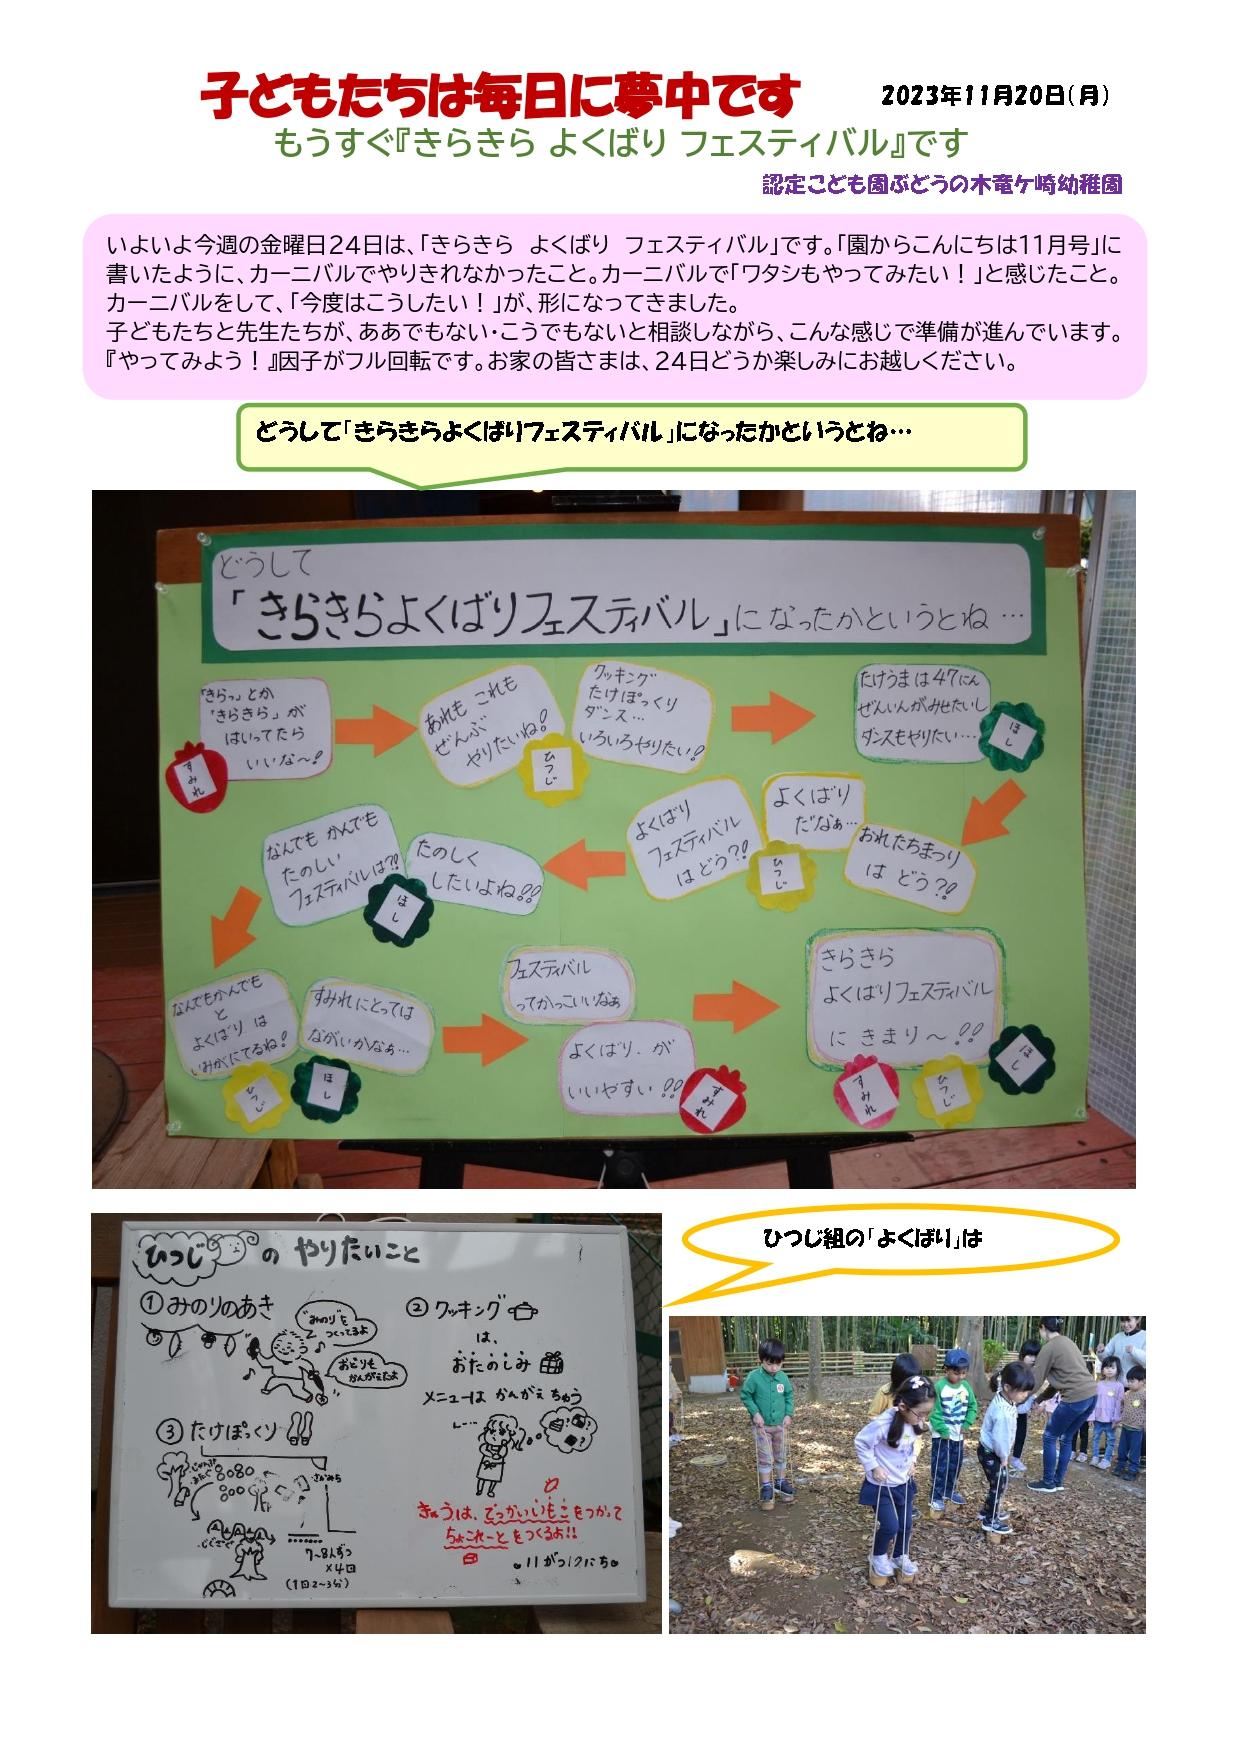 子どもたちは毎日に夢中です
2023年11月20日(月)
もうすぐ『きらきら よくばり フェスティバル』です
認定こども園ぶどうの木竜ケ崎幼稚園
いよいよ今週の金曜日24日は、「きらきら　よくばり　フェスティバル」です。「園からこんにちは11月号」に
書いたように、カーニバルでやりきれなかったこと。カーニバルで「ワタシもやってみたい！」と感じたこと。
カーニバルをして、「今度はこうしたい！」が、形になってきました。
子どもたちと先生たちが、ああでもない・こうでもないと相談しながら、こんな感じで準備が進んでいます。
『やってみよう！』因子がフル回転です。お家の皆さまは、24日どうか楽しみにお越しください。
どうして「きらきらよくばりフェスティバル」になったかというとね…
どうして
「きらきらよくばりフェスティバル」になったかというとね…
「きらっ」とか
「きらきら」が
はいってたら
いいな～!
すみれ
あれも これも
ぜんぶ
やりたいね!
ひつじ
クッキング
たけぽっくり
ダンス…
いろいろやりたい!
たけうまは47にん
ぜんいんがみせたいし
ダンスもやりたい…
ほし
おれたちまつり
は どう?!
よくばり
だなぁ…
よくばり
フェスティバル
はどう?!
ひつじ
たのしく
したいよね!!
なんでも かんでも
たのしい
フェスティバルは?!
ほし
なんでもかんでも
と
よくばり は
いみがにてるね!
ひつじ
すみれにとっては
ながいかなぁ…
ほし
フェスティバル
ってかっこいいなぁ
よくばり、が
いいやすい!!
すみれ
きらきら
よくばりフェスティバル
に きまり～!!
すみれ
ひつじ
ほし
ひつじ組の「よくばり」は
ひつじ の やりたいこと
①みのりのあき
"みのり"を
つくってるよ
おどりも
かんがえたよ
②クッキング
は、
おたのしみ
メニューは かんがえちゅう
③たけぽっくり
7~8人ずつ
×4回
(1回2~3分)
きょうは、でっかいいもこをつかって
ちょこれーとをつくるよ!!